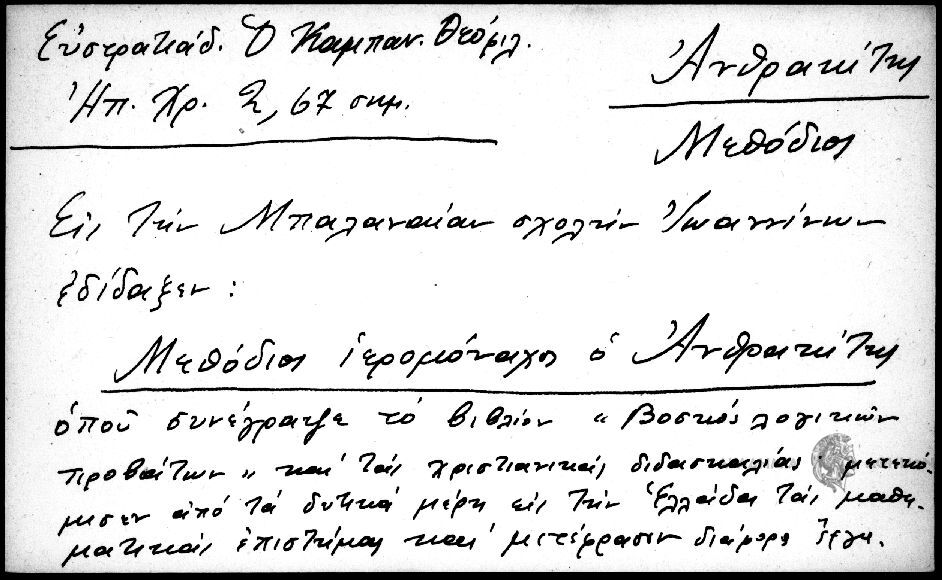 Εὐστρατιάδ. Ὁ Καμπαν. Θεόφιλ.
Ἠπ. Χρ. 2, 67 σημ.
Ἀνθρακίτης
Μεθόδιος
Εἰς τὴν Μπαλαναίαν σχολὴν Ἰωαννίνων
ἐδίδαξεν :
Μεθόδιος ἱερομόναχος ὁ Ἀνθρακίτης
ὁποῦ συνέγραψε τὸ βιβλίον « Βοσκὸς λογικῶν
προβάτων » καὶ τὰς χριστιανικὰς διδασκαλίας· μετεκό-
μισεν ἀπὸ τὰ δυτικὰ μέρη εἰς τὴν Ἑλλάδα τὰς μαθη-
ματικὰς ἐπιστήμας καὶ μετέφρασεν διάφορα ἔργα.